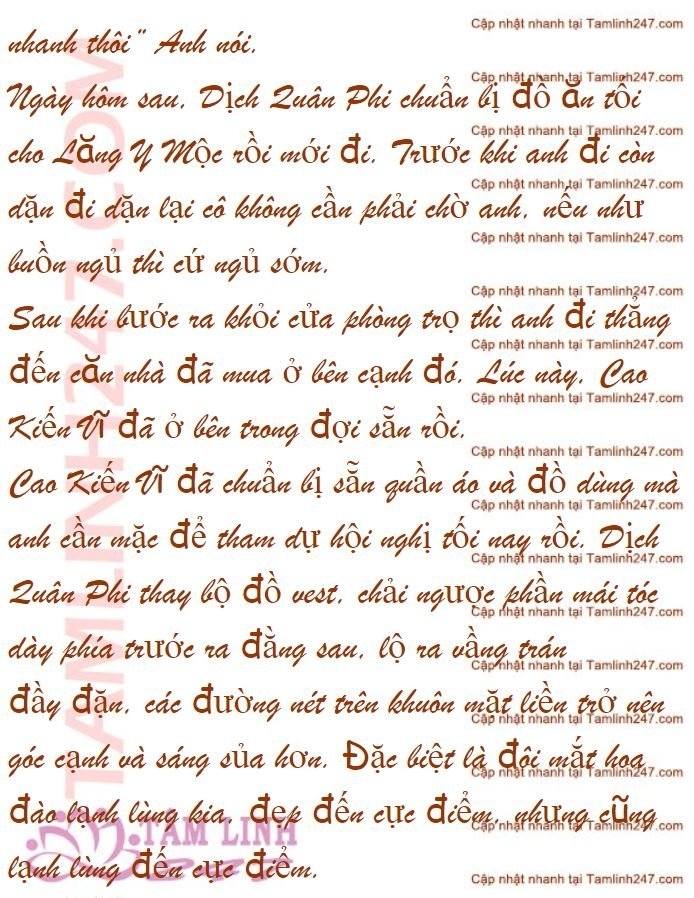 Cập nhật nhanh tại Tamlinh247.com
nhanh thôi" Anh nói.
Cập nhật nhanh tại Tamlinh247.com
Ngày hôm sau, Dịch Quân Phi chuẩn bị đồ ăn tối
Cập nhật nhanh tại Tamlinh247.com
cho Lăng Y Mộc rồi mới đi. Trước khi anh đi còn
Cập nhật nhanh tại Tamlinh247.com
dặn đi dặn lại cô không cần phải chờ anh, nếu như
Cập nhật nhanh tại Tamlinh247.com
buồn ngủ thì cứ ngủ sớm.
Cập nhật nhanh tại Tamlinh247.com
Sau khi bước ra khỏi cửa phòng trọ thì anh đi thẳng
Cập nhật nhanh tại Tamlinh247.com
đến căn nhà đã mua ở bên cạnh đó. Lúc này, Cao
Cập nhật nhanh tại Tamlinh247.com
Kiến Vĩ đã ở bên trong đợi sẵn rồi.
Cập nhật nhanh tại Tamlinh247.com
Cao Kiến Vĩ đã chuẩn bị sẵn quần áo và đồ dùng mà
Cập nhật nhanh tại Tamlinh247.com
anh cần mặc để tham dự hội nghị tối nay rồi. Dịch
Cập nhật nhanh tại Tamlinh247.com
Quân Phi thay bộ đồ vest, chải ngược phần mái tóc
Cập nhật nhanh tại Tamlinh247.com
dày phía trước ra đằng sau, lộ ra vầng trán
Cập nhật nhanh tại Tamlinh247.com
đầy đặn, các đường nét trên khuôn mặt liền trở nên
Cập nhật nhanh tại Tamlinh247.com
góc cạnh và sáng sủa hơn. Đặc biệt là đôi mắt hoa
Cập nhật nhanh tại Tamlinh247.com
đào lạnh lùng kia, đẹp đến cực điểm, nhưng cũng
Cập nhật nhanh tại Tamlinh247.com
lạnh lùng đến cực điểm.
Cập nhật nhanh tại Tamlinh247.com
TAMLINH247.COM
TÂM LINH